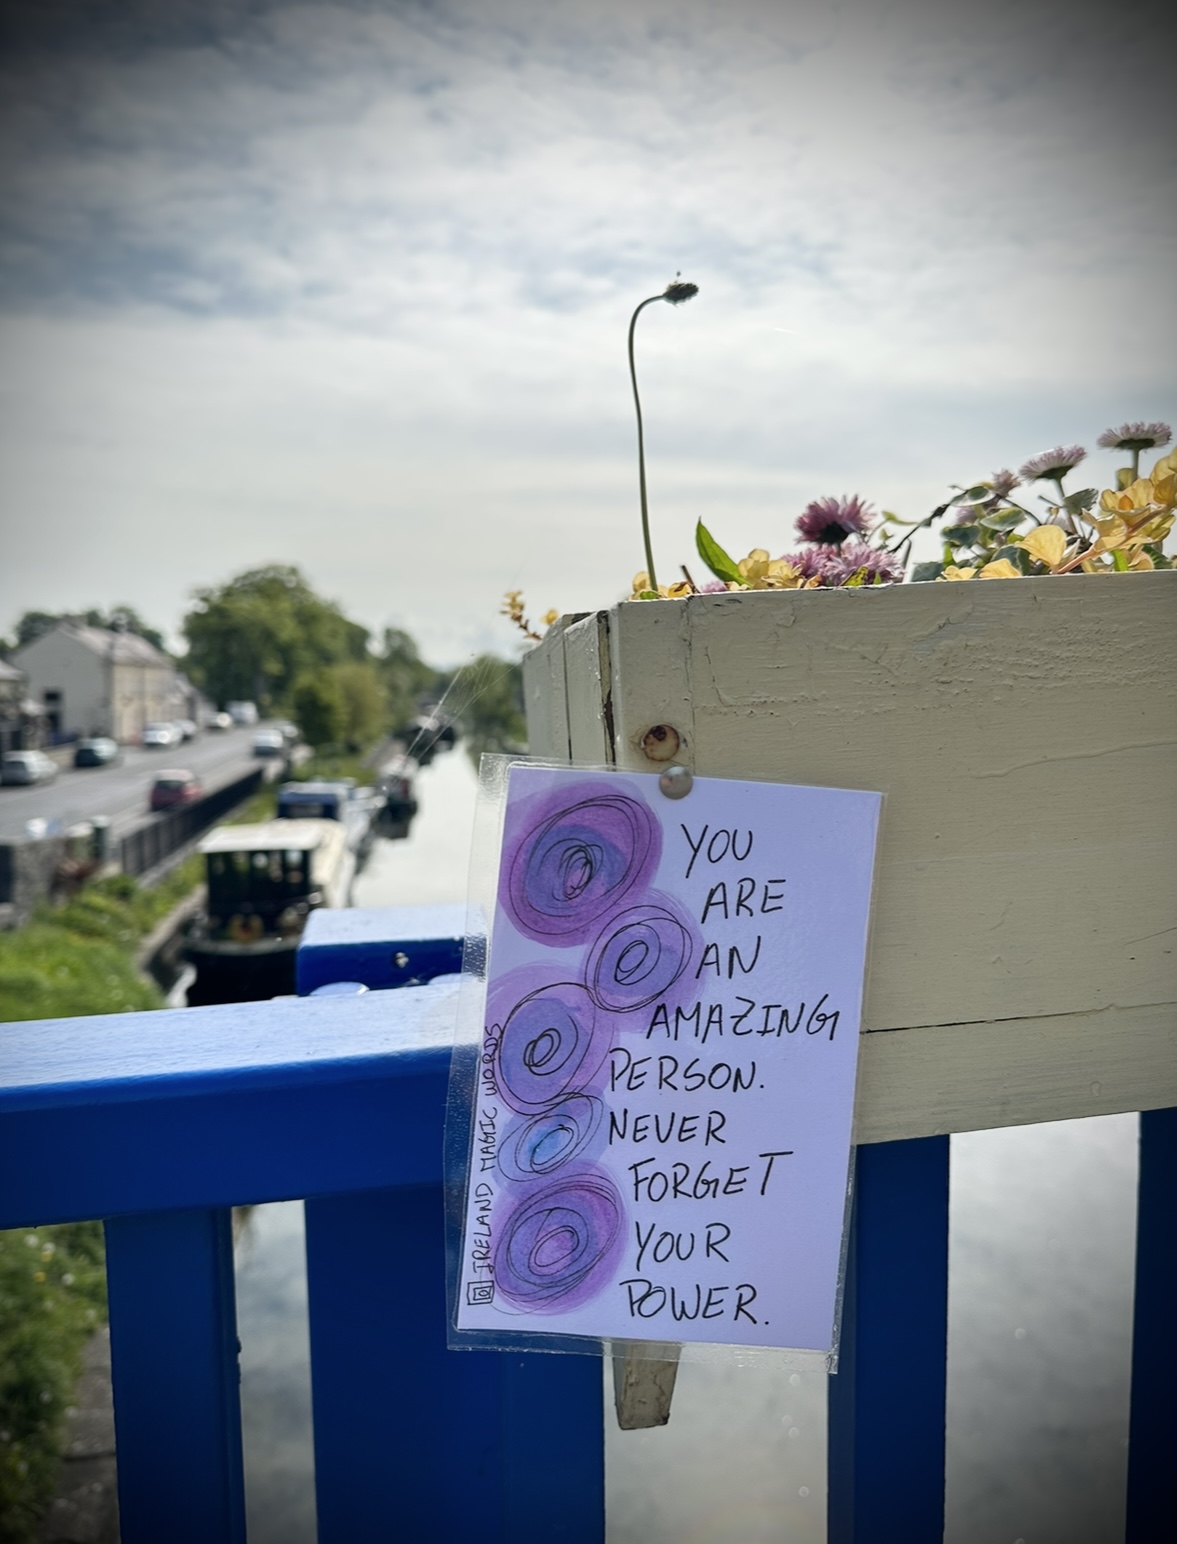 YOU
ARE
AN
AMAZING
PERSON.
NEVER
FORGET
YOUR
POWER.
IRELAND MAGIC WORDS